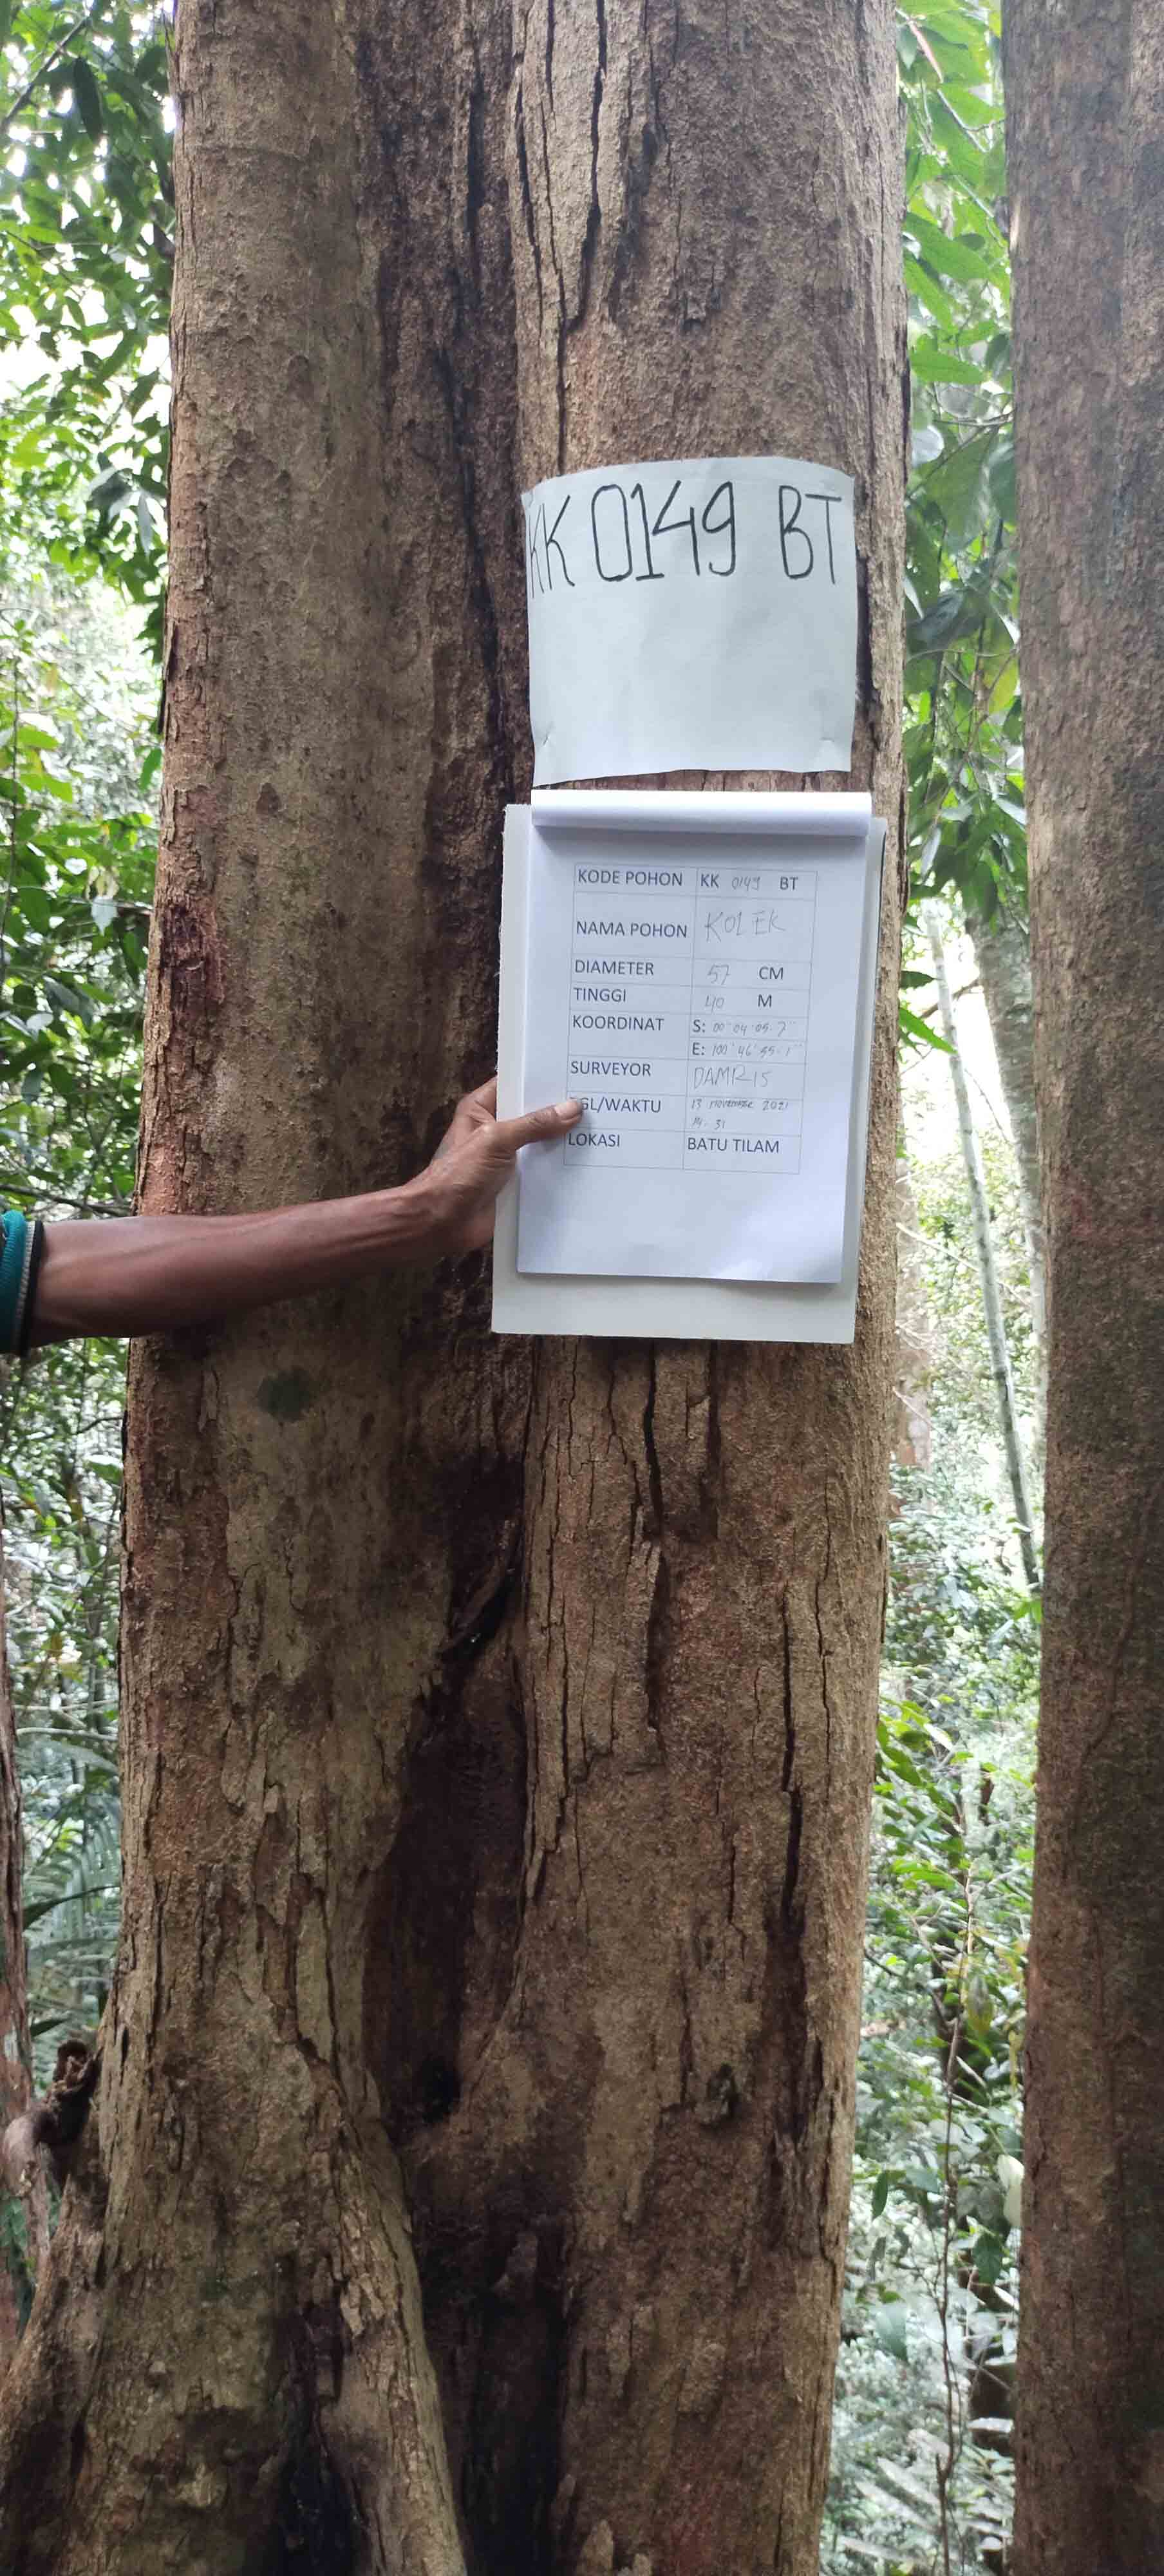 KK 0149 BT
KODE POHON KK 0149 BT
NAMA POHON KOLEK
DIAMETER 57 CM
TINGGI 40 M
KOORDINAT S: 00°04'05.7"
E: 100°46'55.1"
SURVEYOR DAMRIS
GL/WAKTU 13 NOVEMBER 2021
14.31
LOKASI BATU TILAM